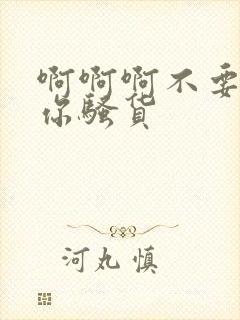 啊啊啊不要
你骚货
河丸慎